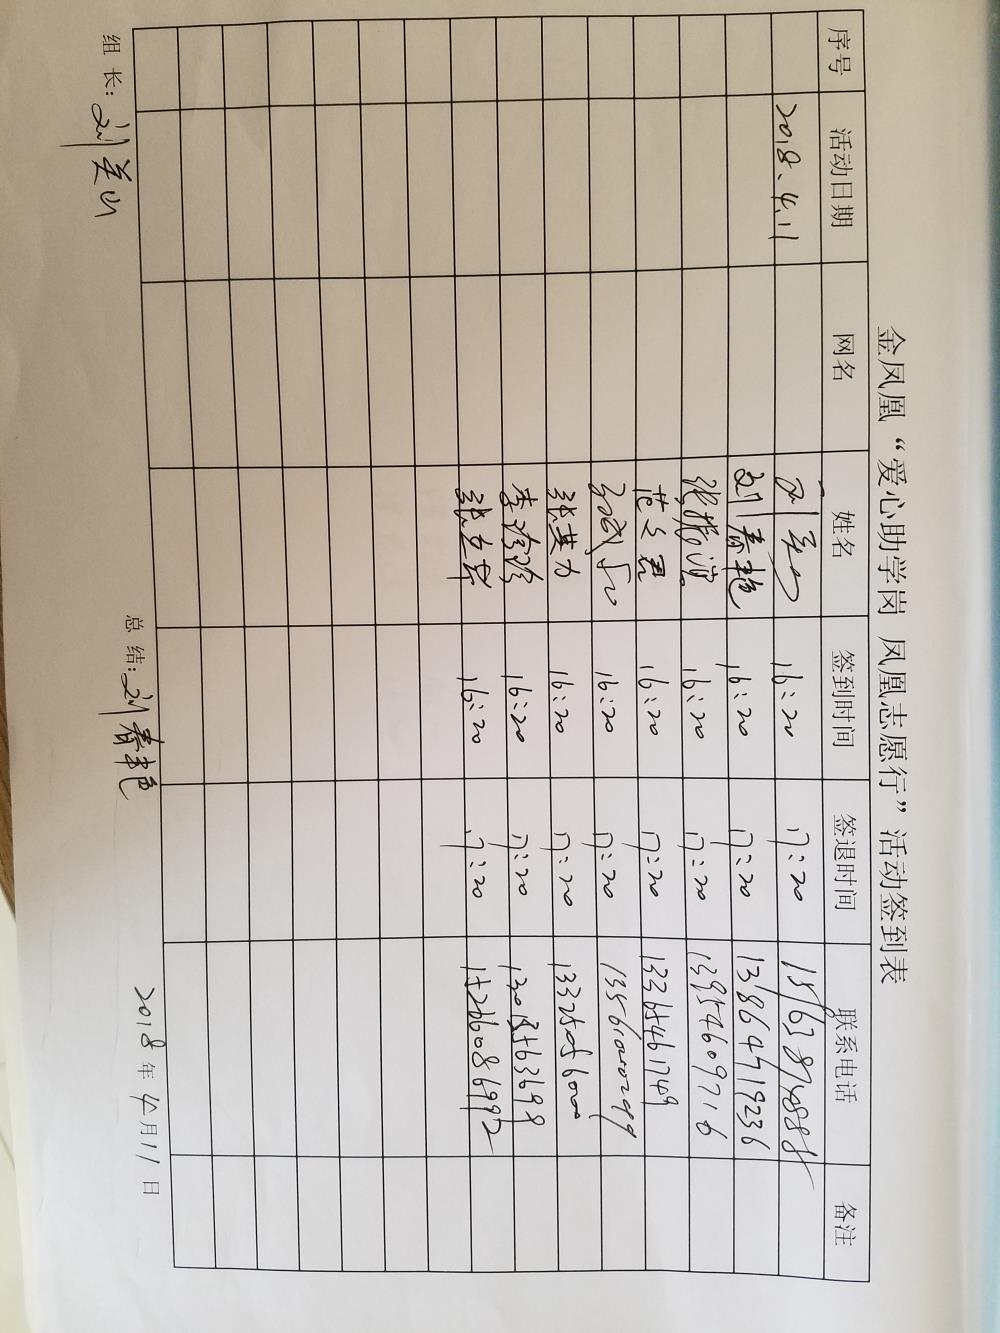 金凤凰“爱心助学岗 凤凰志愿行”活动签到表
序号 活动日期 网名 姓名 签到时间 签退时间 联系电话 备注
2018.4.11 16:20 17:20
刘春艳 16:20 17:20 13864719236
张振滨 16:20 17:20 13954609716
范文君 16:20 17:20 13365461749
16:20 17:20
张英力 16:20 17:20
李珍珍 16:20 17:20
16:20 17:20 15266086992
组长: 总结:刘春艳 2018年4月11日